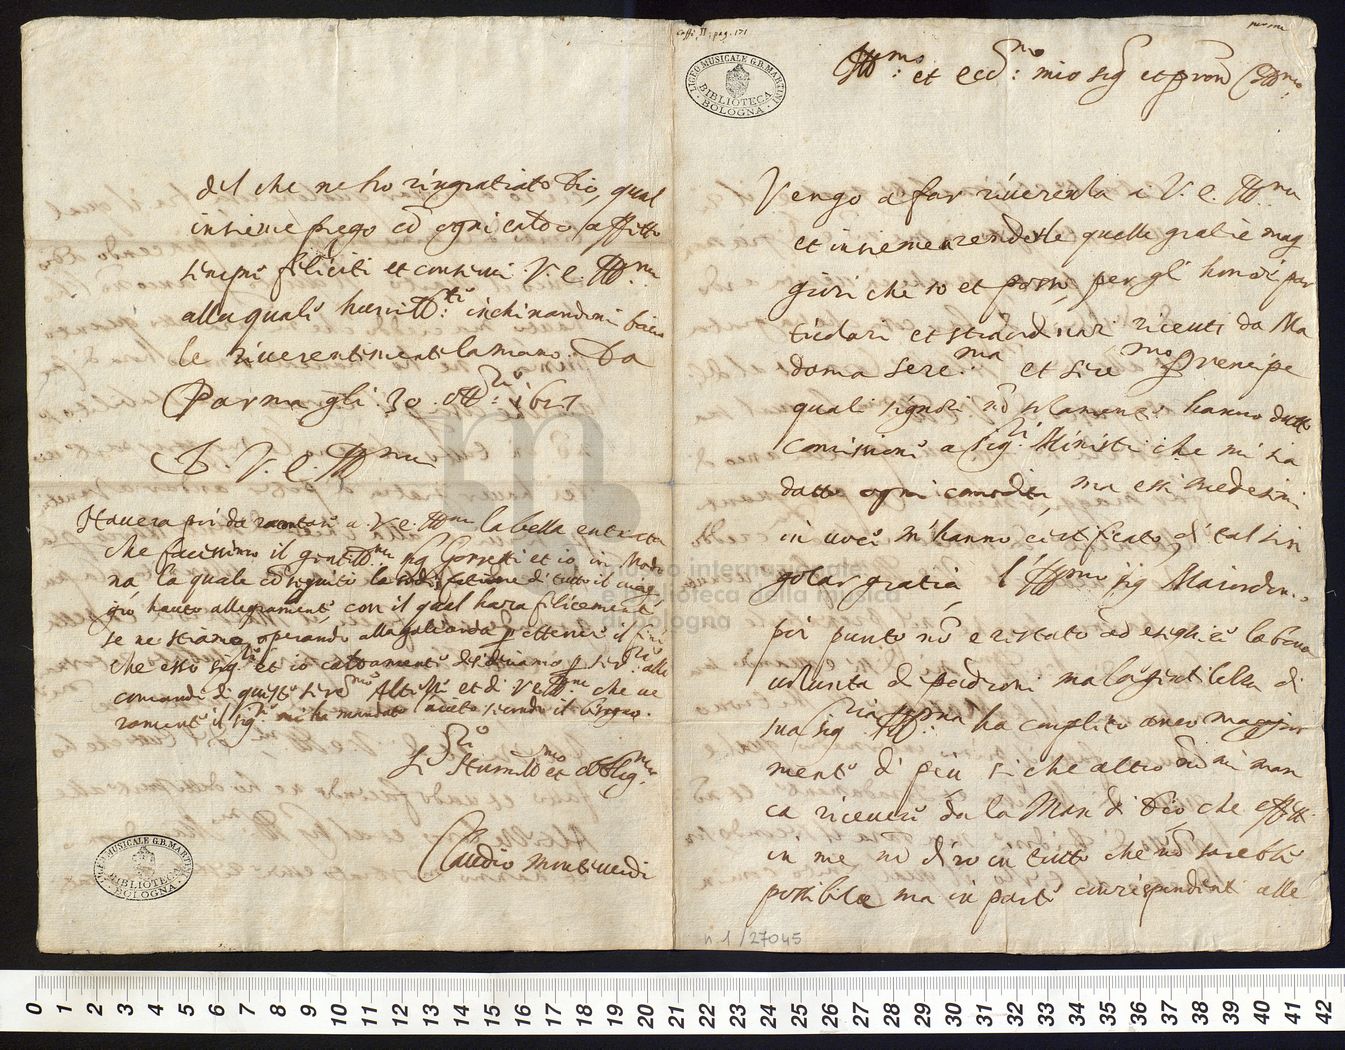 Caffi, II. pag. 171
LICEO MUSICALE G.B. MARTINI
BIBLIOTECA
BOLOGNA
Ill.mo et ecc.mo mio sig et pron Coll.mo
Vengo a far riverenza a V. E. Ill.ma
et insieme renderle quelle gratie mag
giori che io et posso, per gl' honori par
ticolari et straordinari riceuti da Ma
dama Sere.ma et Sere.mo Prencipe
quali signori nō solamente hanno dato
comissione a Sig.ri Ministri che mi sia
datto ogni comodità, ma essi medesimi
in voce m'hanno certificato di tal sin
golar gratia, l'Ill.mo sig Maiordomo
poi punto nō è restato ad eseghire la bona
volontà de padroni ma la gentilezza di
sua Sig.ria Ill.ma ha complito anco maggior
mente di più si che altro nō mi man
ca ricevere da la Man di Dio che effetti
in me nō dirò in tutto che nō sarebbe
possibile ma in parte corrispondenti alle
n.1/27045
del che ne ho ringratiato Dio, qual
insieme prego cō ogni caldo affetto
sempre feliciti et conservi V. E. Ill.ma
alla quale humill.te inchinandomi bacio
le riverentemente la mano. Da
Parma gli 30 ott.e 1627
D. V. E. Ill.ma
Havera poi da racontare a V. E. Ill.ma la bella entrata
che facessimo il gentill.mo sig Goretti et io in Mode
na, la quale cō seguitò la sodisfatione di tutto il viag
gio hauto allegramente, con il qual hora felicemente
se ne stiamo operando alla gagliarda
che esso sig.r et io caldamente desideriamo
comandi di queste sere.me Altezze et di V. E. Ill.ma che ve
ramente il sig.r mi ha mandato aiuto secondo il bisogno.
Ser.re Humill.mo et obblig.mo
Claudio Monteverdi
LICEO MUSICALE G.B. MARTINI
BIBLIOTECA
BOLOGNA
museo internazionale
e biblioteca della musica
di bologna
0 1 2 3 4 5 6 7 8 9 10 11 12 13 14 15 16 17 18 19 20 21 22 23 24 25 26 27 28 29 30 31 32 33 34 35 36 37 38 39 40 41 42